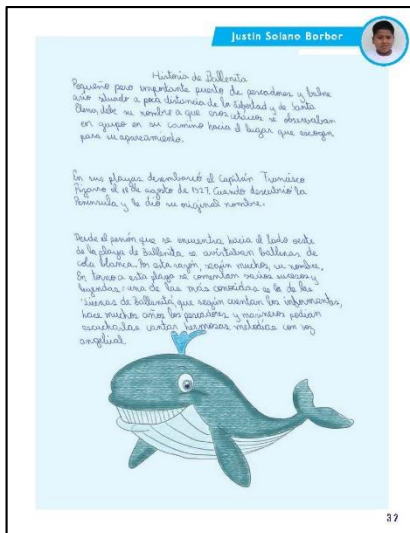 Justin Solano Borbor
Historia de Ballenita
Pequeño pero importante puerto de pescadores y balne
ario situado a poca distancia de la libertad y de Santa
Elena, debe su nombre a que esos cetáceos se observaban
en grupo en su camino hacia el lugar que escogen
para su apareamiento.
En sus playas desembarcó el capitán Francisco
Pizarro el 18 de agosto de 1527. Cuando descubrió la
Península y le dió su original nombre.
Desde el peñón que se encuentra hacia el lado oeste
de la playa de Ballenita se avistaban ballenas de
cola blanca. Por esta razón, según muchos, su nombre.
En torno a esta playa se comentan varios sucesos y
leyendas: una de las más conocidas es la de las
"sirenas de Ballenita", que según cuentan los informantes,
hace muchos años los pescadores y marineros podían
escucharlas cantar hermosas melodías con voz
angelical.
32